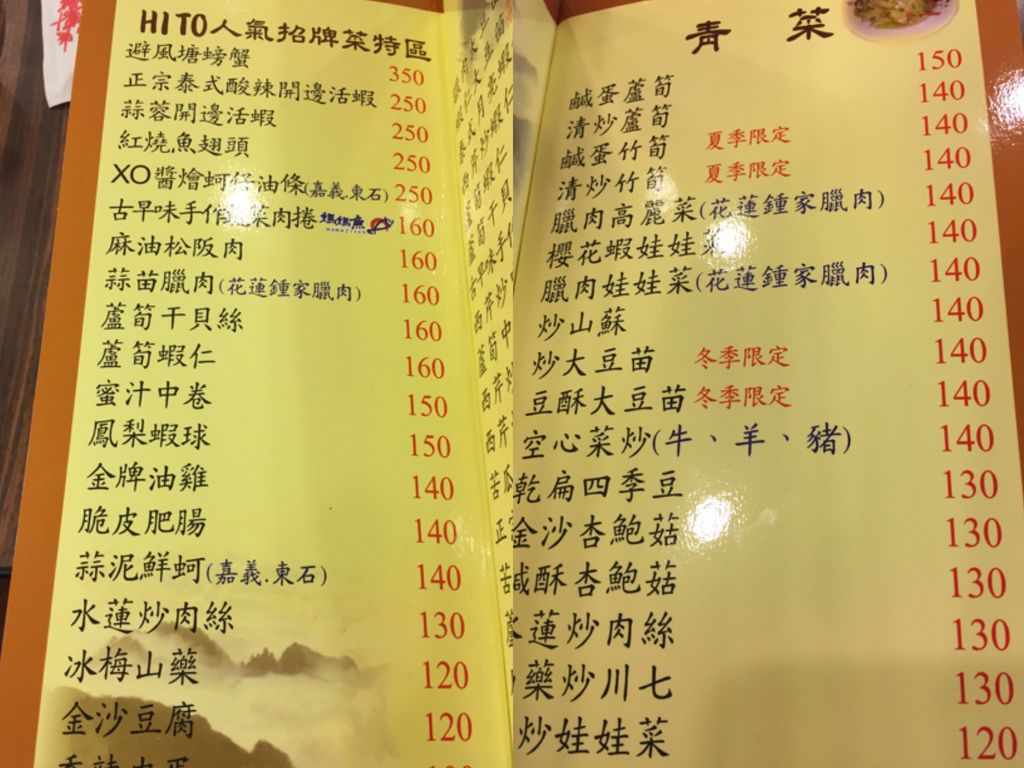 HITO人氣招牌菜特區
避風塘螃蟹 350
正宗泰式酸辣開邊活蝦 250
蒜蓉開邊活蝦 250
紅燒魚翅頭 250
XO醬燴蚵仔油條(嘉義.東石) 250
古早味手作 菜肉捲 160
麻油松阪肉 160
蒜苗臘肉(花蓮鍾家臘肉) 160
蘆筍干貝絲 160
蘆筍蝦仁 160
蜜汁中卷 150
鳳梨蝦球 150
金牌油雞 140
脆皮肥腸 140
蒜泥鮮蚵(嘉義.東石) 140
水蓮炒肉絲 130
冰梅山藥 120
金沙豆腐 120
青菜
150
鹹蛋蘆筍 140
清炒蘆筍 140
鹹蛋竹筍 夏季限定 140
清炒竹筍 夏季限定 140
臘肉高麗菜(花蓮鍾家臘肉) 140
櫻花蝦娃娃菜 140
臘肉娃娃菜(花蓮鍾家臘肉) 140
炒山蘇 140
炒大豆苗 冬季限定 140
豆酥大豆苗 冬季限定 140
空心菜炒(牛、羊、豬) 130
乾扁四季豆 130
金沙杏鮑菇 130
咸酥杏鮑菇 130
蓮炒肉絲 130
藥炒川七 120
炒娃娃菜